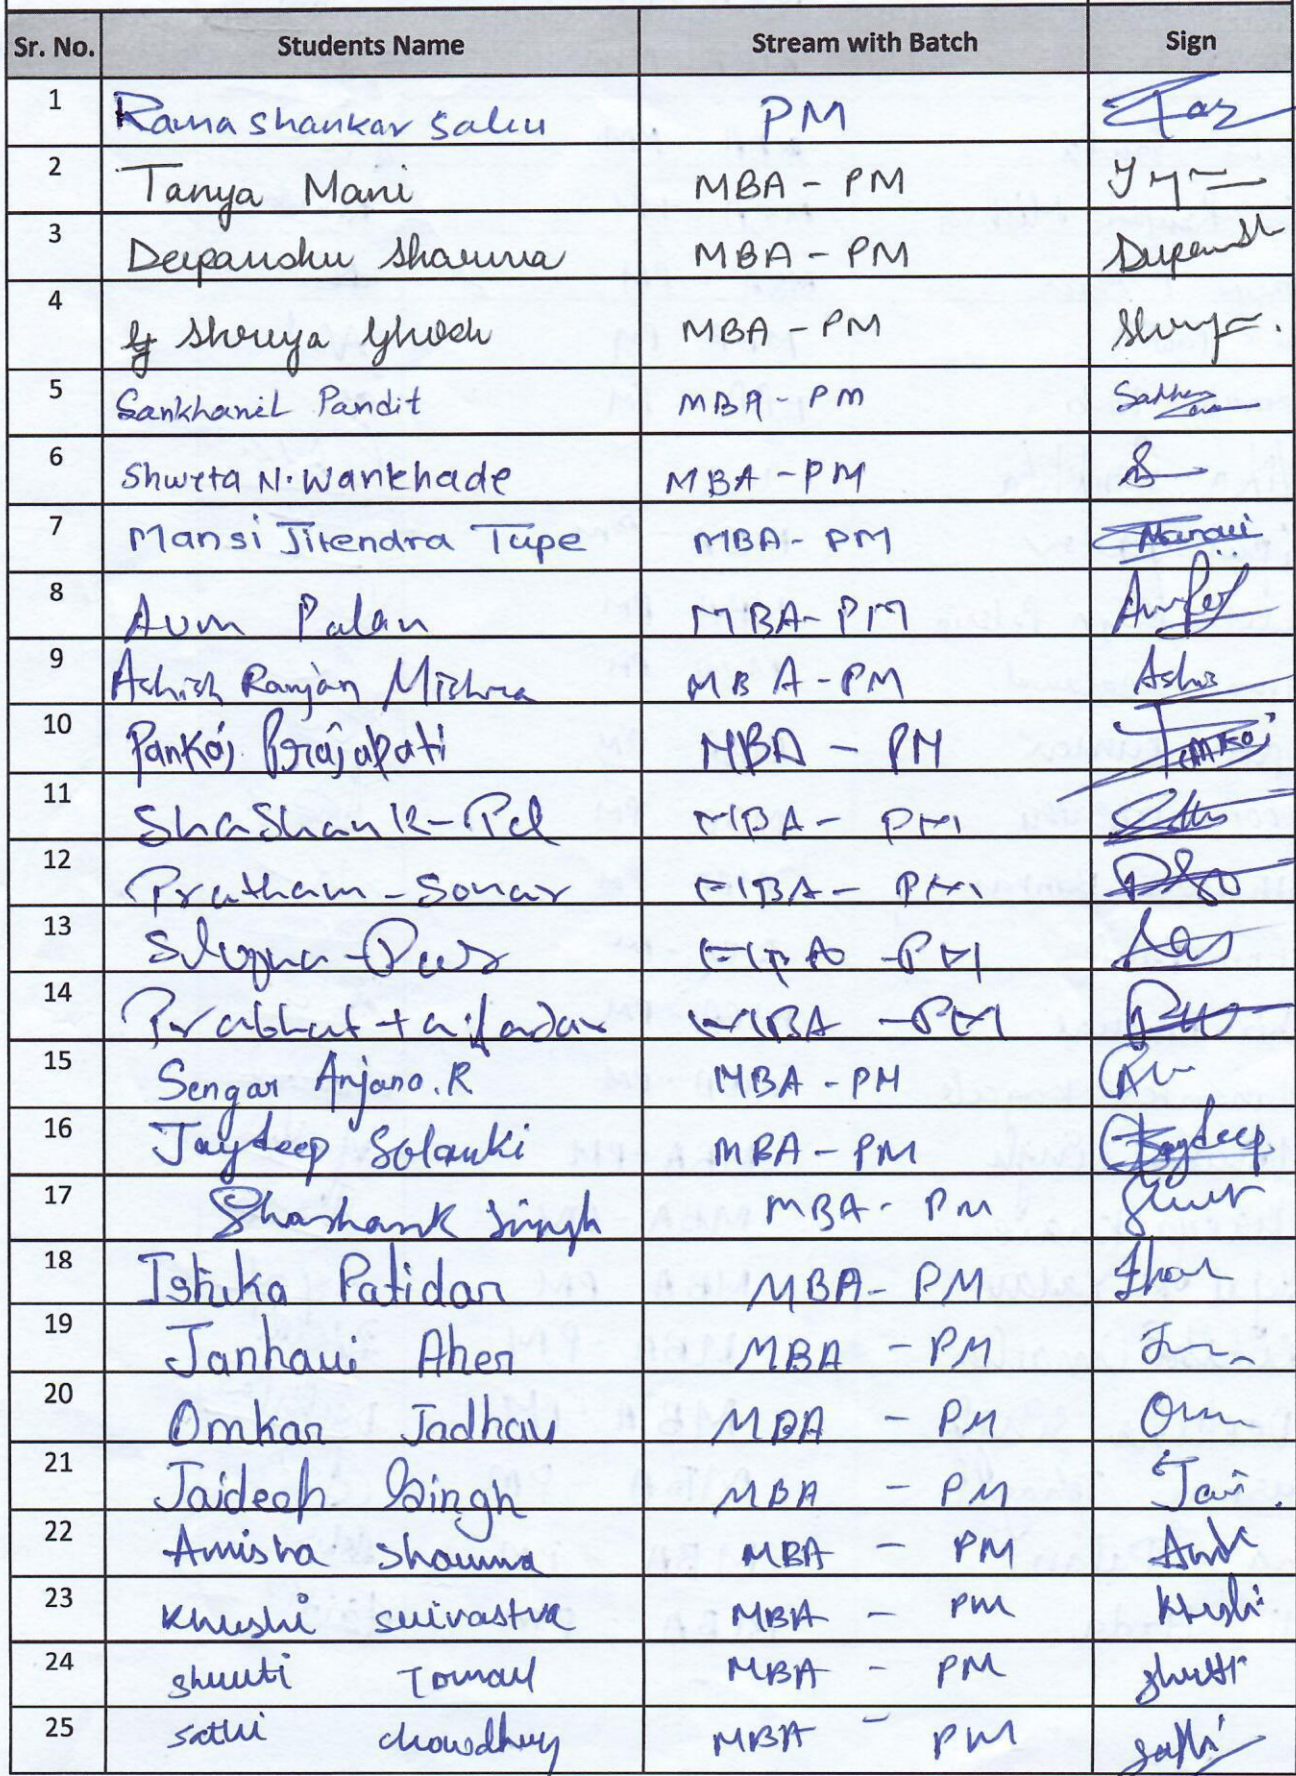 Sr. No. Students Name Stream with Batch Sign
1 Rama Shankar Sahu PM
2 Tanya Mani MBA - PM
3 Deepanshu Sharma MBA - PM
4 Shreya Ghosh MBA - PM
5 Sankhanil Pandit MBA - PM
6 Shweta N. Wankhade MBA - PM
7 Mansi Jitendra Tupe MBA - PM Mansi
8 Aum Palan MBA - PM
9 Ashish Ranjan Mishra MBA - PM Ashis
10 Pankaj Prajapati MBA - PM Pankaj
11 Shashank - Pal MBA - PM
12 Pratham - Sonar MBA - PM
13 MBA - PM
14 Prabhat MBA - PM
15 Sengar Anjana. R MBA - PM
16 Jaydeep Solanki MBA - PM Jaydeep
17 Shashank Singh MBA - PM
18 Ishika Patidar MBA - PM
19 Janhavi Aher MBA - PM
20 Omkar Jadhav MBA - PM
21 Jaideep Singh MBA - PM Jai
22 Amisha Sharma MBA - PM
23 Khushi Srivastva MBA - PM Khushi
24 Shruti Tomar MBA - PM Shruti
25 Sathi Chowdhury MBA - PM Sathi